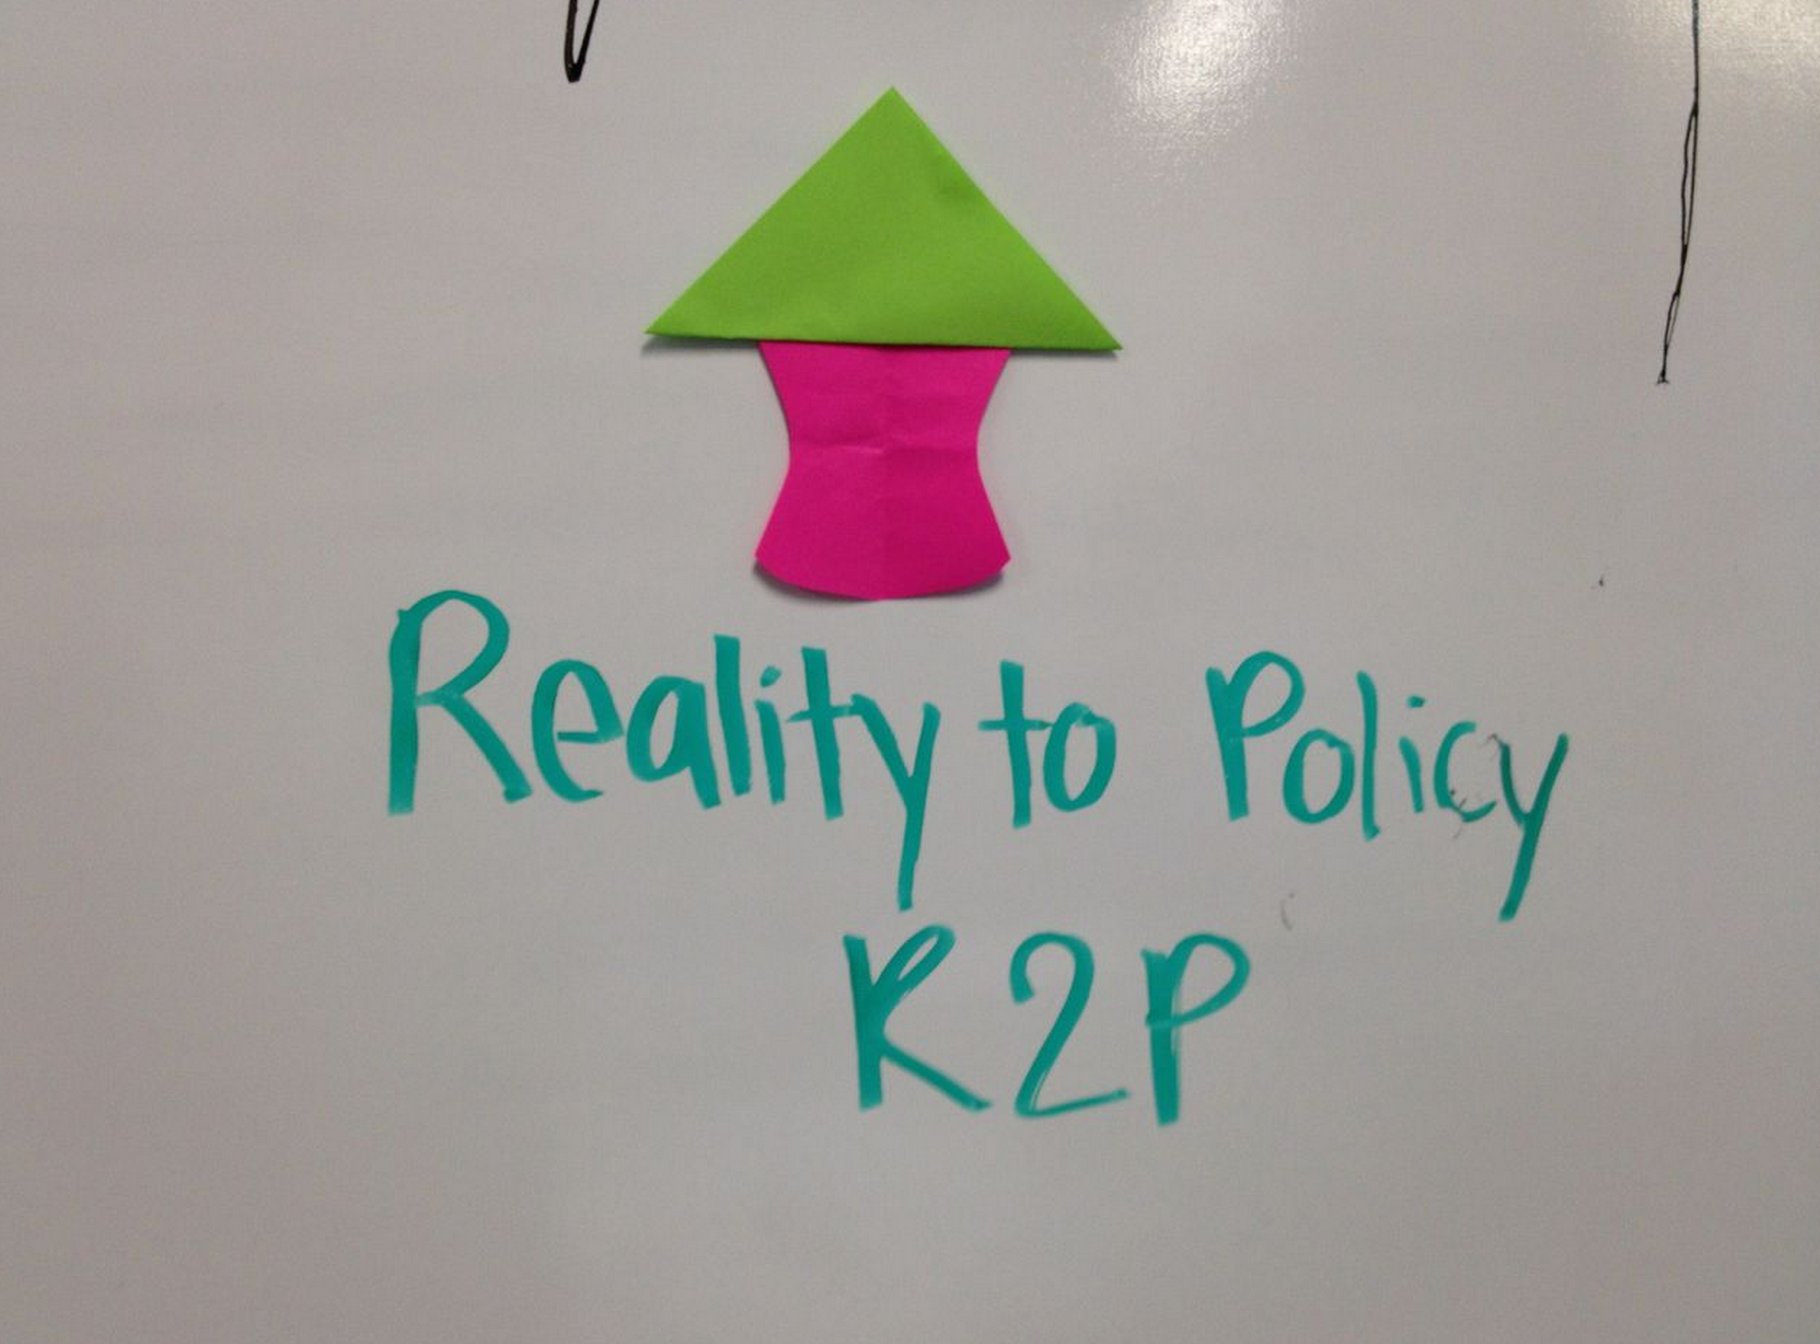 Reality to Policy
R2P